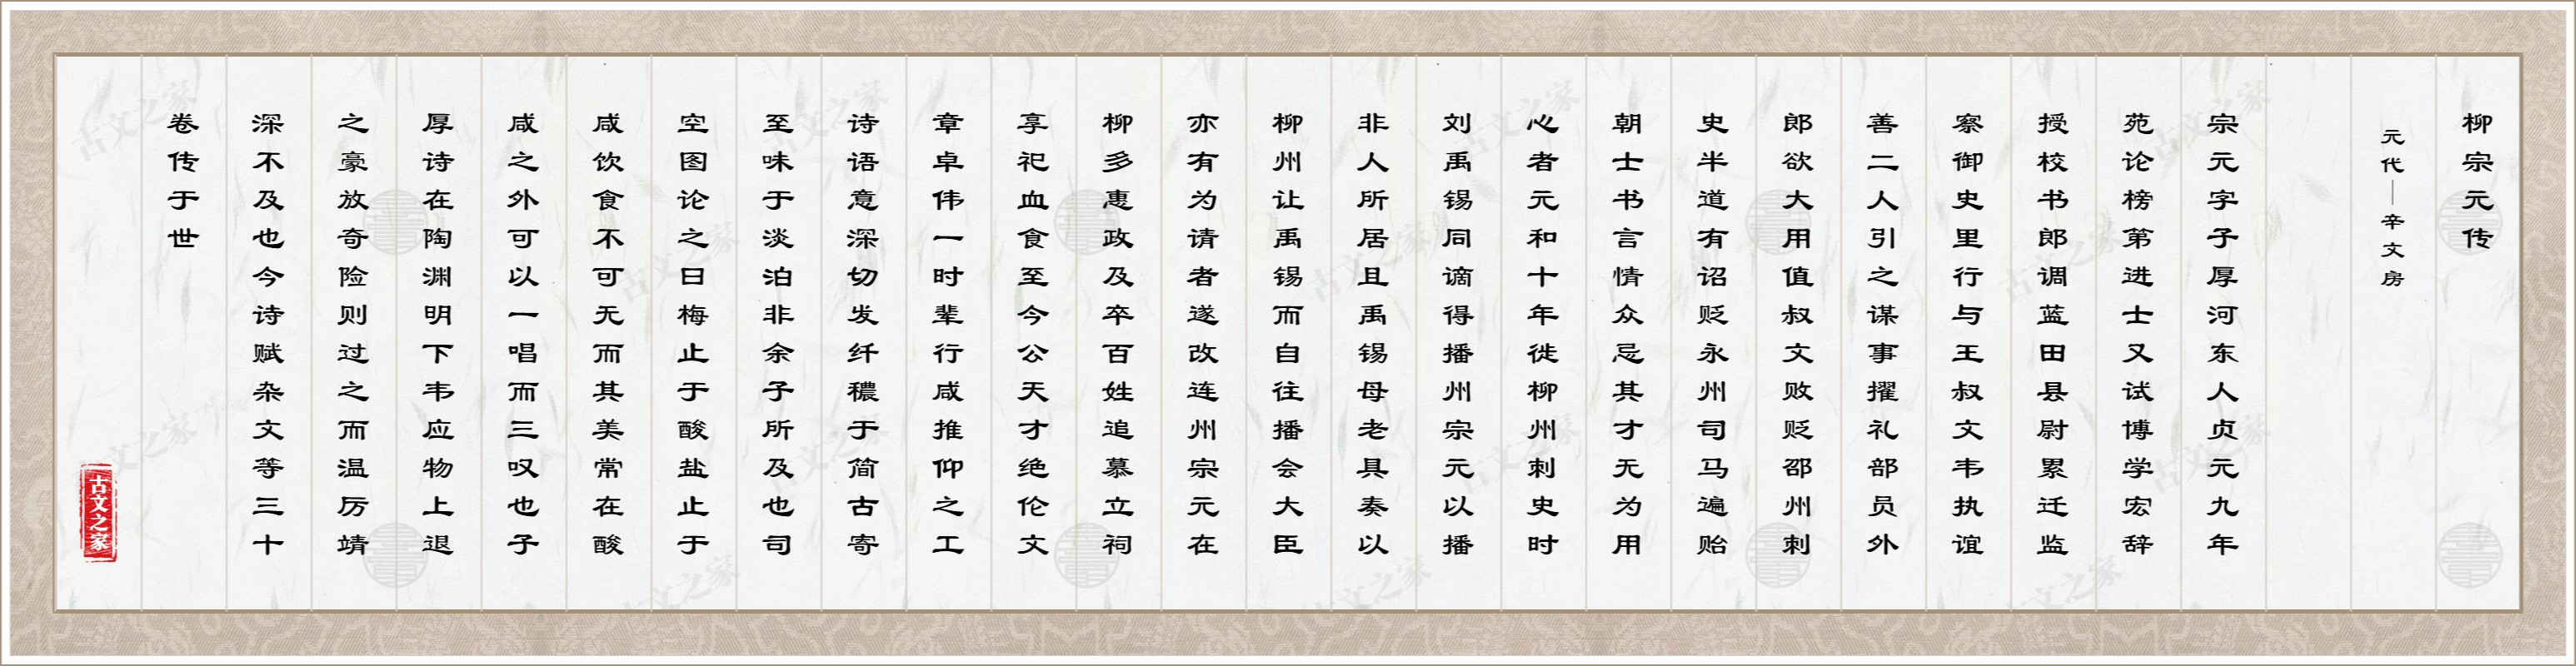 柳宗元传
元代—辛文房
宗元字子厚河东人贞元九年
苑论榜第进士又试博学宏辞
授校书郎调蓝田县尉累迁监
察御史里行与王叔文韦执谊
善二人引之谋事擢礼部员外
郎欲大用值叔文败贬邵州刺
史半道有诏贬永州司马遍贻
朝士书言情众忌其才无为用
心者元和十年徙柳州刺史时
刘禹锡同谪得播州宗元以播
非人所居且禹锡母老具奏以
柳州让禹锡而自往播会大臣
亦有为请者遂改连州宗元在
柳多惠政及卒百姓追慕立祠
享祀血食至今公天才绝伦文
章卓伟一时辈行咸推仰之工
诗语意深切发纤穠于简古寄
至味于淡泊非余子所及也司
空图论之曰梅止于酸盐止于
咸饮食不可无而其美常在酸
咸之外可以一唱而三叹也子
厚诗在陶渊明下韦应物上退
之豪放奇险则过之而温厉靖
深不及也今诗赋杂文等三十
卷传于世
古文之家